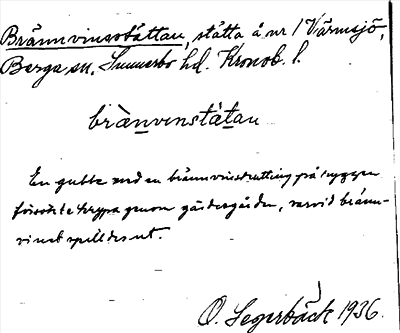 Brännvinsstättan, stätta å nr 1 Värmsjö,
Berga sn, Sunnerbo hd. Kronob. l.
brànvinstätan
En gubbe med en brännvinskutting på ryggen
försökte krypa genom gärdesgården, varvid bränn-
vinet spilldes ut.
O. Segerbäck 1936.